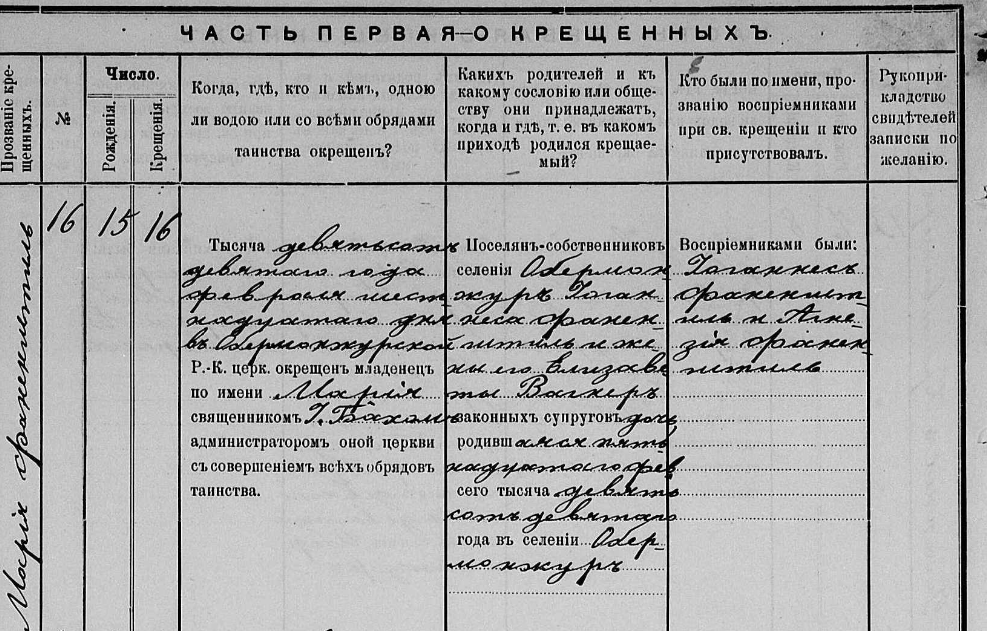 ЧАСТЬ ПЕРВАЯ—О КРЕЩЕННЫХЪ.
Прозваніе кре-
щенныхъ.
№
Число.
Рожденія.
Крещенія.
Когда, гдѣ, кто и кѣмъ, одною
ли водою или со всѣми обрядами
таинства окрещенъ?
Какихъ родителей и къ
какому сословію или обще-
ству они принадлежатъ,
когда и гдѣ, т. е. въ какомъ
приходѣ родился крещае-
мый?
Кто были по имени, про-
званію воспріемниками
при св. крещеніи и кто
присутствовалъ.
Рукопри-
кладство
свидѣтелей
записки по
желанію.
Марія Франкенштиль
16
15
16
Тысяча девятьсотъ
девятаго года
февраля шест-
надцатаго дня
въ Обермонжурской
Р.-К. церк. окрещенъ младенецъ
по имени Марія
священникомъ І. Бахомъ
администраторомъ оной церкви
съ совершеніемъ всѣхъ обрядовъ
таинства.
Поселянъ-собственниковъ
селенія Обермон-
журъ Іоган-
неса Франкен-
штиль и же-
ны его Елизаве-
ты Вагнеръ
законныхъ супруговъ дочь
родившаяся пят-
надцатаго фев
сего тысяча девять
сотъ девятаго
года въ селеніи Обер-
монжуръ
Воспріемниками были:
Іоганнесъ
Франкеншт-
иль и Агне-
зія Франкен-
штиль